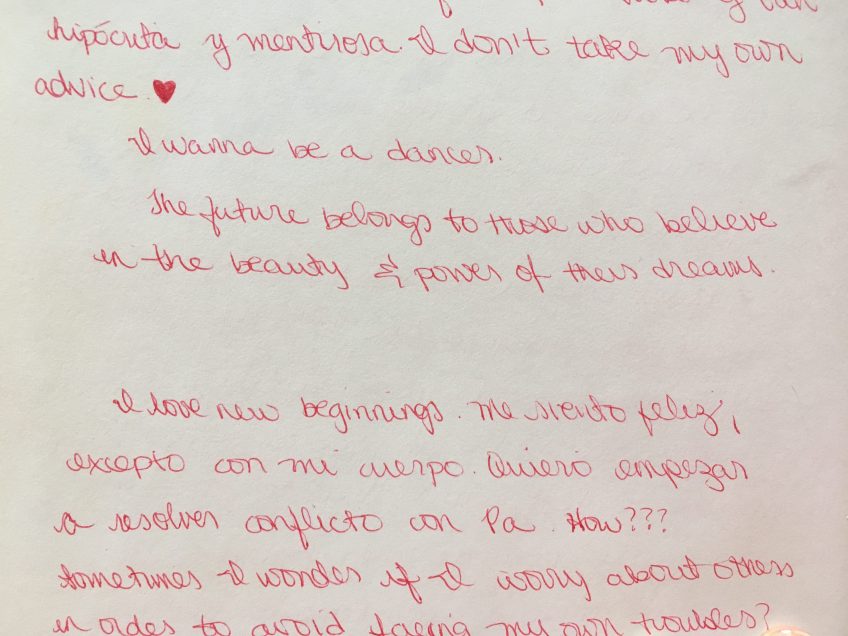 y tan
hipócrita y mentirosa. I don't take my own
advice. ♥
I wanna be a dancer.
The future belongs to those who believe
in the beauty & power of their dreams.
I love new beginnings. Me siento feliz,
excepto con mi cuerpo. Quiero empezar
a resolver conflicto con Pa. How???
Sometimes I wonder if I worry about others
in order to avoid facing my own troubles?